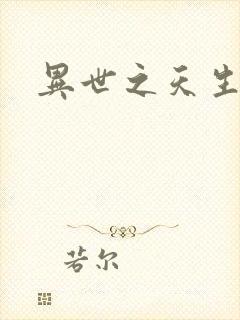 異世之天生
若尔